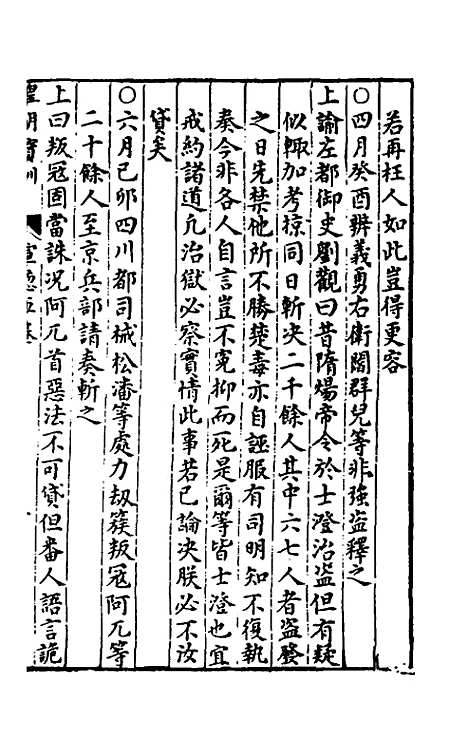 若再枉人如此豈得更容
○四月癸酉辨義勇右衛閻群兒等非強盗釋之
上諭左都御史劉觀曰昔隋煬帝令於士澄治盗但有疑
似輙加考掠同日斬决二千餘人其中六七人者盗發
之日先禁他所不勝楚毒亦自誣服有司明知不復執
奏今非各人自言豈不寃抑而死是爾等皆士澄也宜
戒約諸道凢治獄必察實情此事若已論决朕必不汝
貸矣
○六月己卯四川都司械松潘等處力刼簇叛冦阿兀等
二十餘人至京兵部請奏斬之
上曰叛冦固當誅况阿兀首惡法不可貸但番人語言詭
皇明寶訓